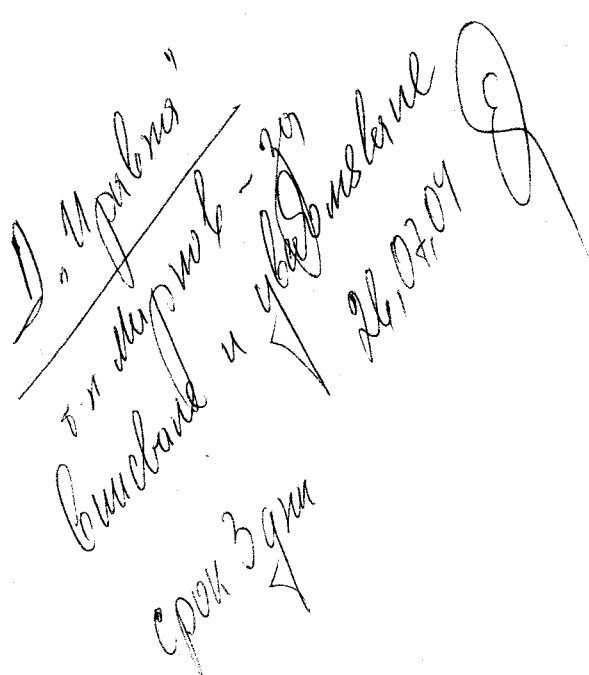 Д. "Правна"
г-н Миронов - за
вписване и уведомяване
26.07.04
срок 3 дни